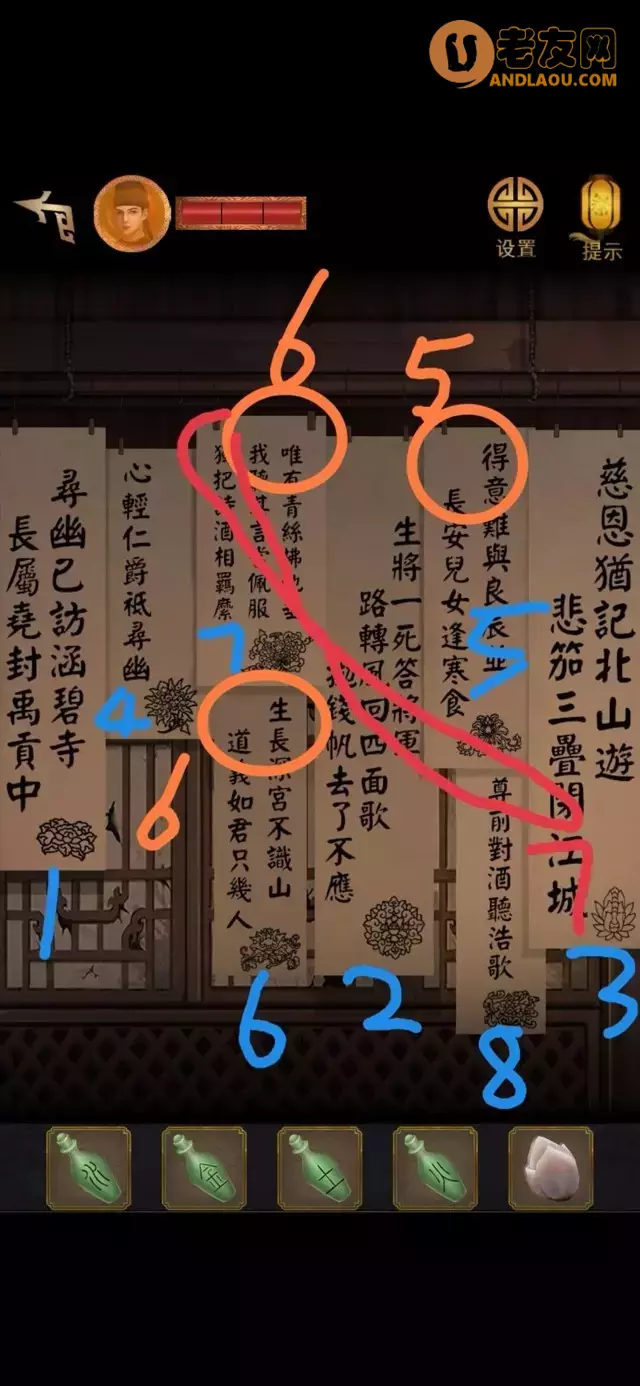 老友网
ANDLAOU.COM
设置
提示
6
5
慈恩猶記北山遊
悲笳三疊閉江城
得意難與良辰並
長安兒女逢寒食
尊前對酒聽浩歌
生將一死答將軍
路轉風回四面歌
錢帆去了不應
唯有青絲拂地
佩服
把詩酒相羈縻
生長深宮不識山
道義如君只幾人
心輕仁爵祗尋幽
尋幽已訪涵碧寺
長屬堯封禹貢中
7
5
4
6
7
1
6
2
3
8
水
金
土
火